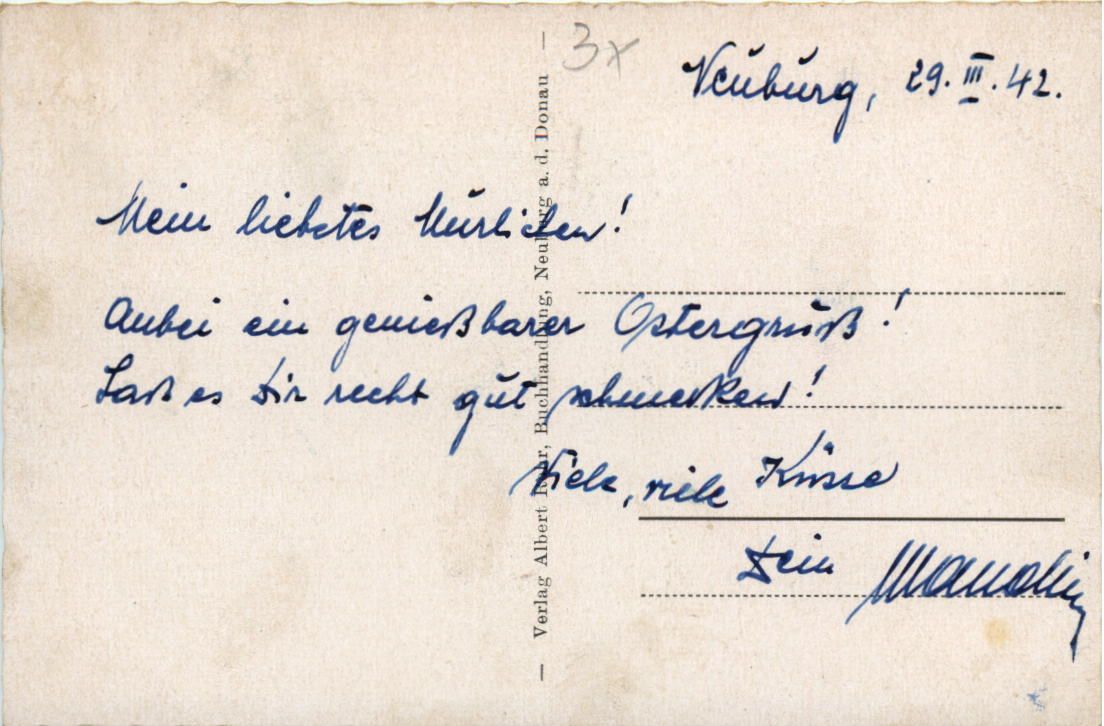 3x
Neuburg, 29. III. 42.
Mein liebstes Murlichen!
Anbei ein genießbarer Ostergruß!
Laß es Dir recht gut schmecken!
Viele, viele Küsse
Dein
— Verlag Albert Buchhandlung, Neuburg a. d. Donau —